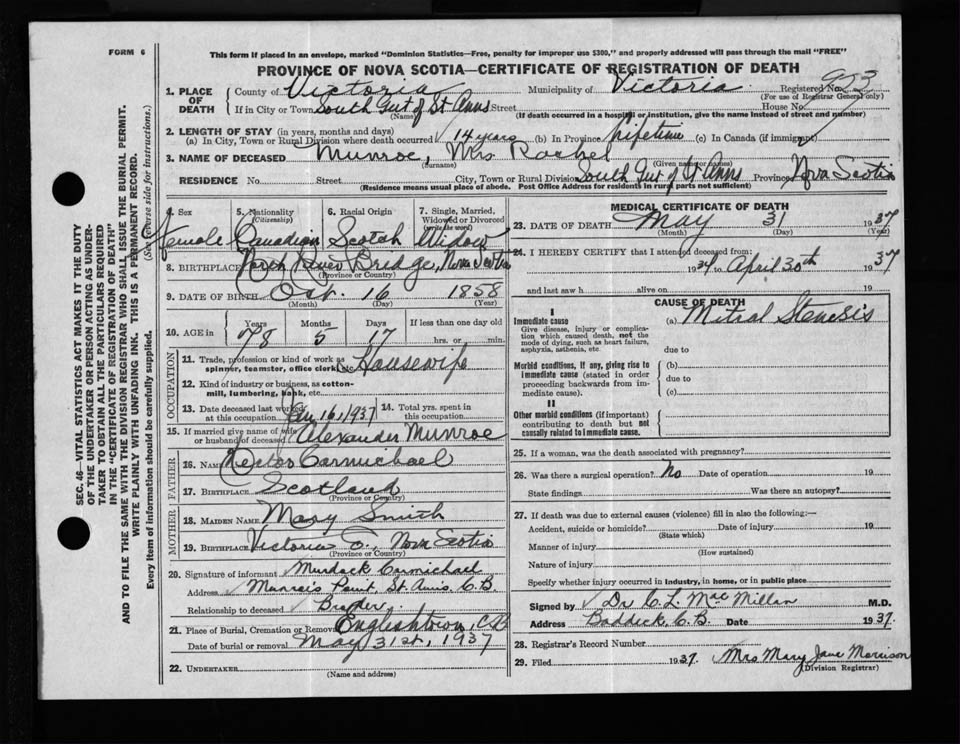 FORM 6
This form if placed in an envelope, marked "Dominion Statistics—Free, penalty for improper use $300," and properly addressed will pass through the mail "FREE"
PROVINCE OF NOVA SCOTIA—CERTIFICATE OF REGISTRATION OF DEATH
1. PLACE OF DEATH
County of Victoria Municipality of Victoria Registered No. 923
(For use of Registrar General only)
If in City or Town South Gut of St Anns Street House No.
(Name) (If death occurred in a hospital or institution, give the name instead of street and number)
2. LENGTH OF STAY (in years, months and days)
(a) In City, Town or Rural Division where death occurred 14 years (b) In Province lifetime (c) In Canada (if immigrant)
3. NAME OF DECEASED Munroe, Mrs Rachel
(Surname) (Given name or names)
RESIDENCE No. Street City, Town or Rural Division South Gut of St Anns Province Nova Scotia
(Residence means usual place of abode. Post Office Address for residents in rural parts not sufficient)
4. Sex 5. Nationality (Citizenship) 6. Racial Origin 7. Single, Married, Widowed or Divorced (write the word)
female Canadian Scotch Widow
8. BIRTHPLACE North River Bridge, Nova Scotia
(Province or Country)
9. DATE OF BIRTH Oct. 16 1858
(Month) (Day) (Year)
10. AGE in Years Months Days If less than one day old
78 5 17 hrs. or min.
OCCUPATION
11. Trade, profession or kind of work as spinner, teamster, office clerk, etc. Housewife
12. Kind of industry or business, as cotton-mill, lumbering, bank, etc.
13. Date deceased last worked at this occupation Jan 16, 1937 14. Total yrs. spent in this occupation
15. If married give name of wife or husband of deceased Alexander Munroe
FATHER
16. NAME Hector Carmichael
17. BIRTHPLACE Scotland
(Province or Country)
MOTHER
18. MAIDEN NAME Mary Smith
19. BIRTHPLACE Victoria Co., Nova Scotia
(Province or Country)
20. Signature of informant Murdock Carmichael
Address Munroe's Point, St. Anns, C.B.
Relationship to deceased Brother.
21. Place of Burial, Cremation or Removal Englishtown, C.B.
Date of burial or removal May 31st, 1937
22. UNDERTAKER
(Name and address)
MEDICAL CERTIFICATE OF DEATH
23. DATE OF DEATH May 31 1937
(Month) (Day) (Year)
24. I HEREBY CERTIFY that I attended deceased from:
1934 to April 30th 1937
and last saw h alive on 19
CAUSE OF DEATH
I
Immediate cause (a) Mitral Stenesis
Give disease, injury or complication which caused death, not the mode of dying, such as heart failure, asphyxia, asthenia, etc.
due to
Morbid conditions, if any, giving rise to immediate cause (stated in order proceeding backwards from immediate cause).
(b)
due to
(c)
II
Other morbid conditions (if important) contributing to death but not causally related to immediate cause.
25. If a woman, was the death associated with pregnancy?
26. Was there a surgical operation? No Date of operation 19
State findings Was there an autopsy?
27. If death was due to external causes (violence) fill in also the following:—
Accident, suicide or homicide? Date of injury 19
(State which)
Manner of injury
(How sustained)
Nature of injury
Specify whether injury occurred in industry, in home, or in public place
Signed by Dr C. L. MacMillan M.D.
Address Baddeck, C.B. Date 1937.
28. Registrar's Record Number
29. Filed 1937. Mrs Mary Jane Morrison
(Division Registrar)
SEC. 46—VITAL STATISTICS ACT MAKES IT THE DUTY
OF THE UNDERTAKER OR PERSON ACTING AS UNDER-
TAKER TO OBTAIN ALL THE PARTICULARS REQUIRED
IN THE "CERTIFICATE OF REGISTRATION OF DEATH"
AND TO FILE THE SAME WITH THE DIVISION REGISTRAR WHO SHALL ISSUE THE BURIAL PERMIT.
WRITE PLAINLY WITH UNFADING INK. THIS IS A PERMANENT RECORD.
Every item of information should be carefully supplied. (See reverse side for instructions.)